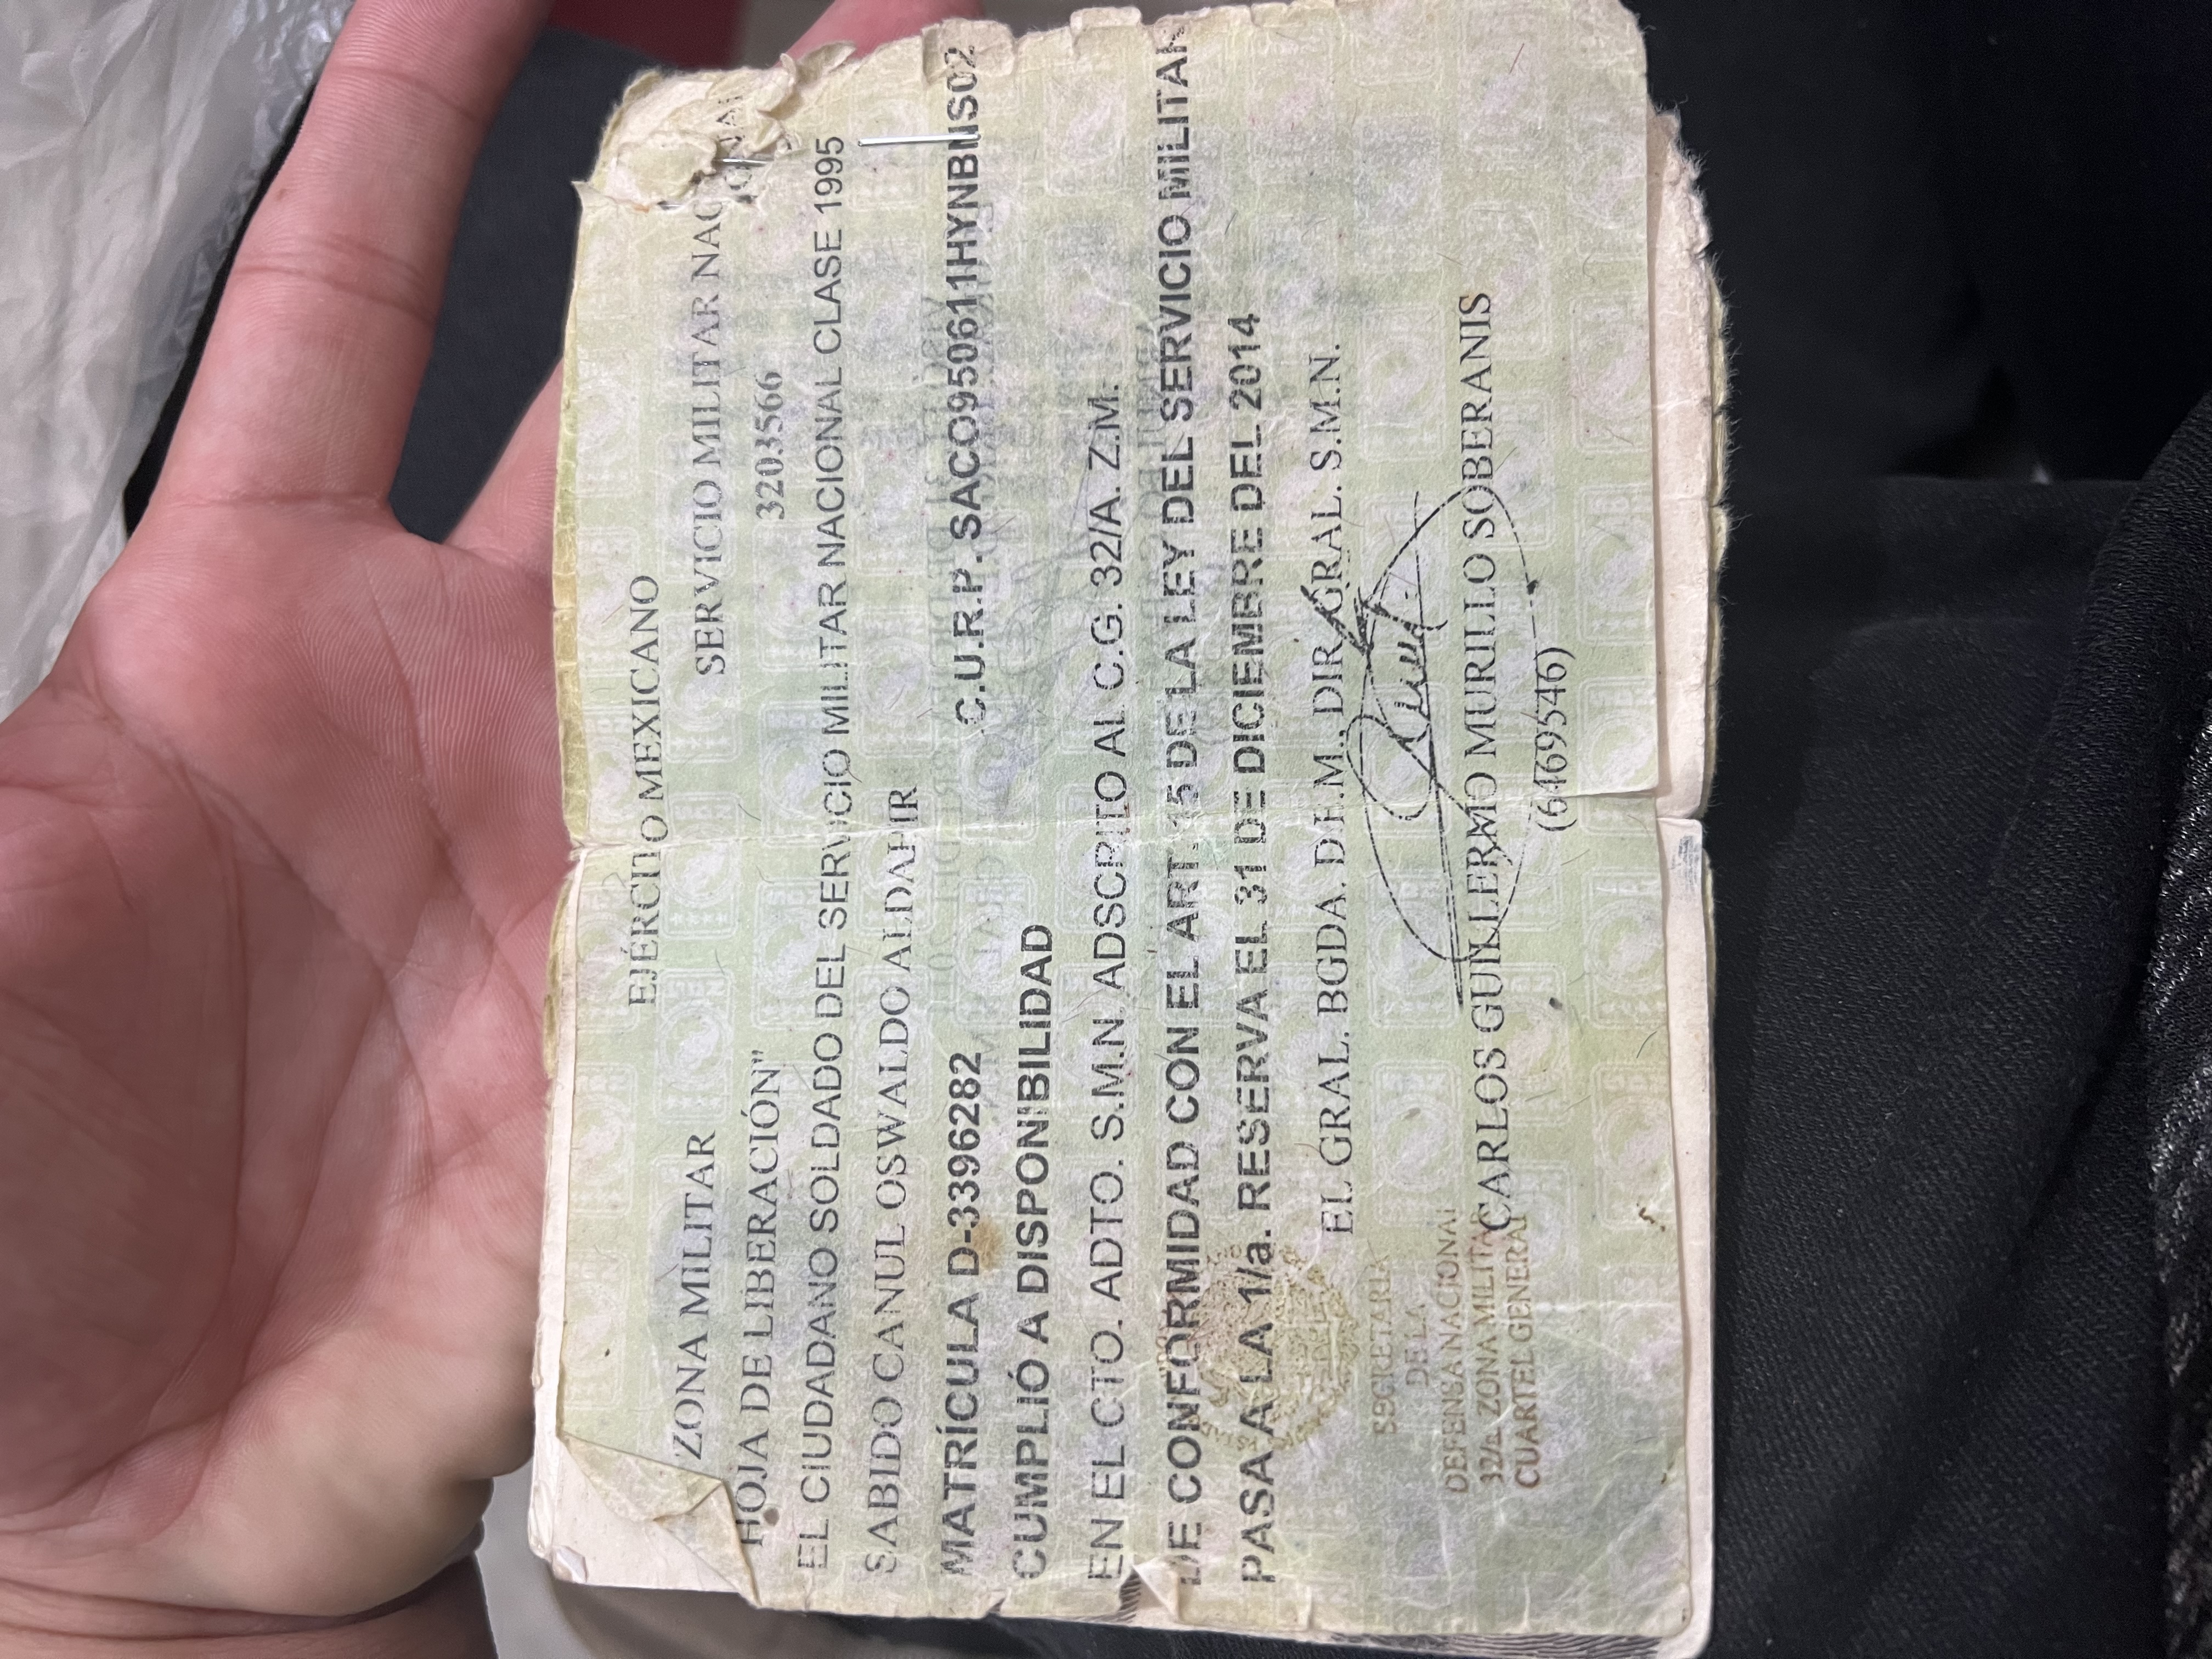 EJÉRCITO MEXICANO
ZONA MILITAR SERVICIO MILITAR
HOJA DE LIBERACIÓN" 3203566
EL CIUDADANO SOLDADO DEL SERVICIO MILITAR NACIONAL CLASE 1995
SABIDO CANUL OSWALDO ALDAHIR
MATRÍCULA D-3396282 C.U.R.P. SACO950611HYNBNS02
CUMPLIÓ A DISPONIBILIDAD
EN EL CTO. ADTO. S.M.N. ADSCRITO AL C.G. 32/A. Z.M.
DE CONFORMIDAD CON EL ART. 15 DE LA LEY DEL SERVICIO MILITAR
PASA A LA 1/a. RESERVA EL 31 DE DICIEMBRE DEL 2014
EL GRAL. BGDA. DE.M., DIR. GRAL. S.M.N.
SECRETARIA
DE LA
DEFENSA NACIONAL
32/a. ZONA MILITAR
CUARTEL GENERAL
CARLOS GUILLERMO MURILLO SOBERANIS
(64695546)